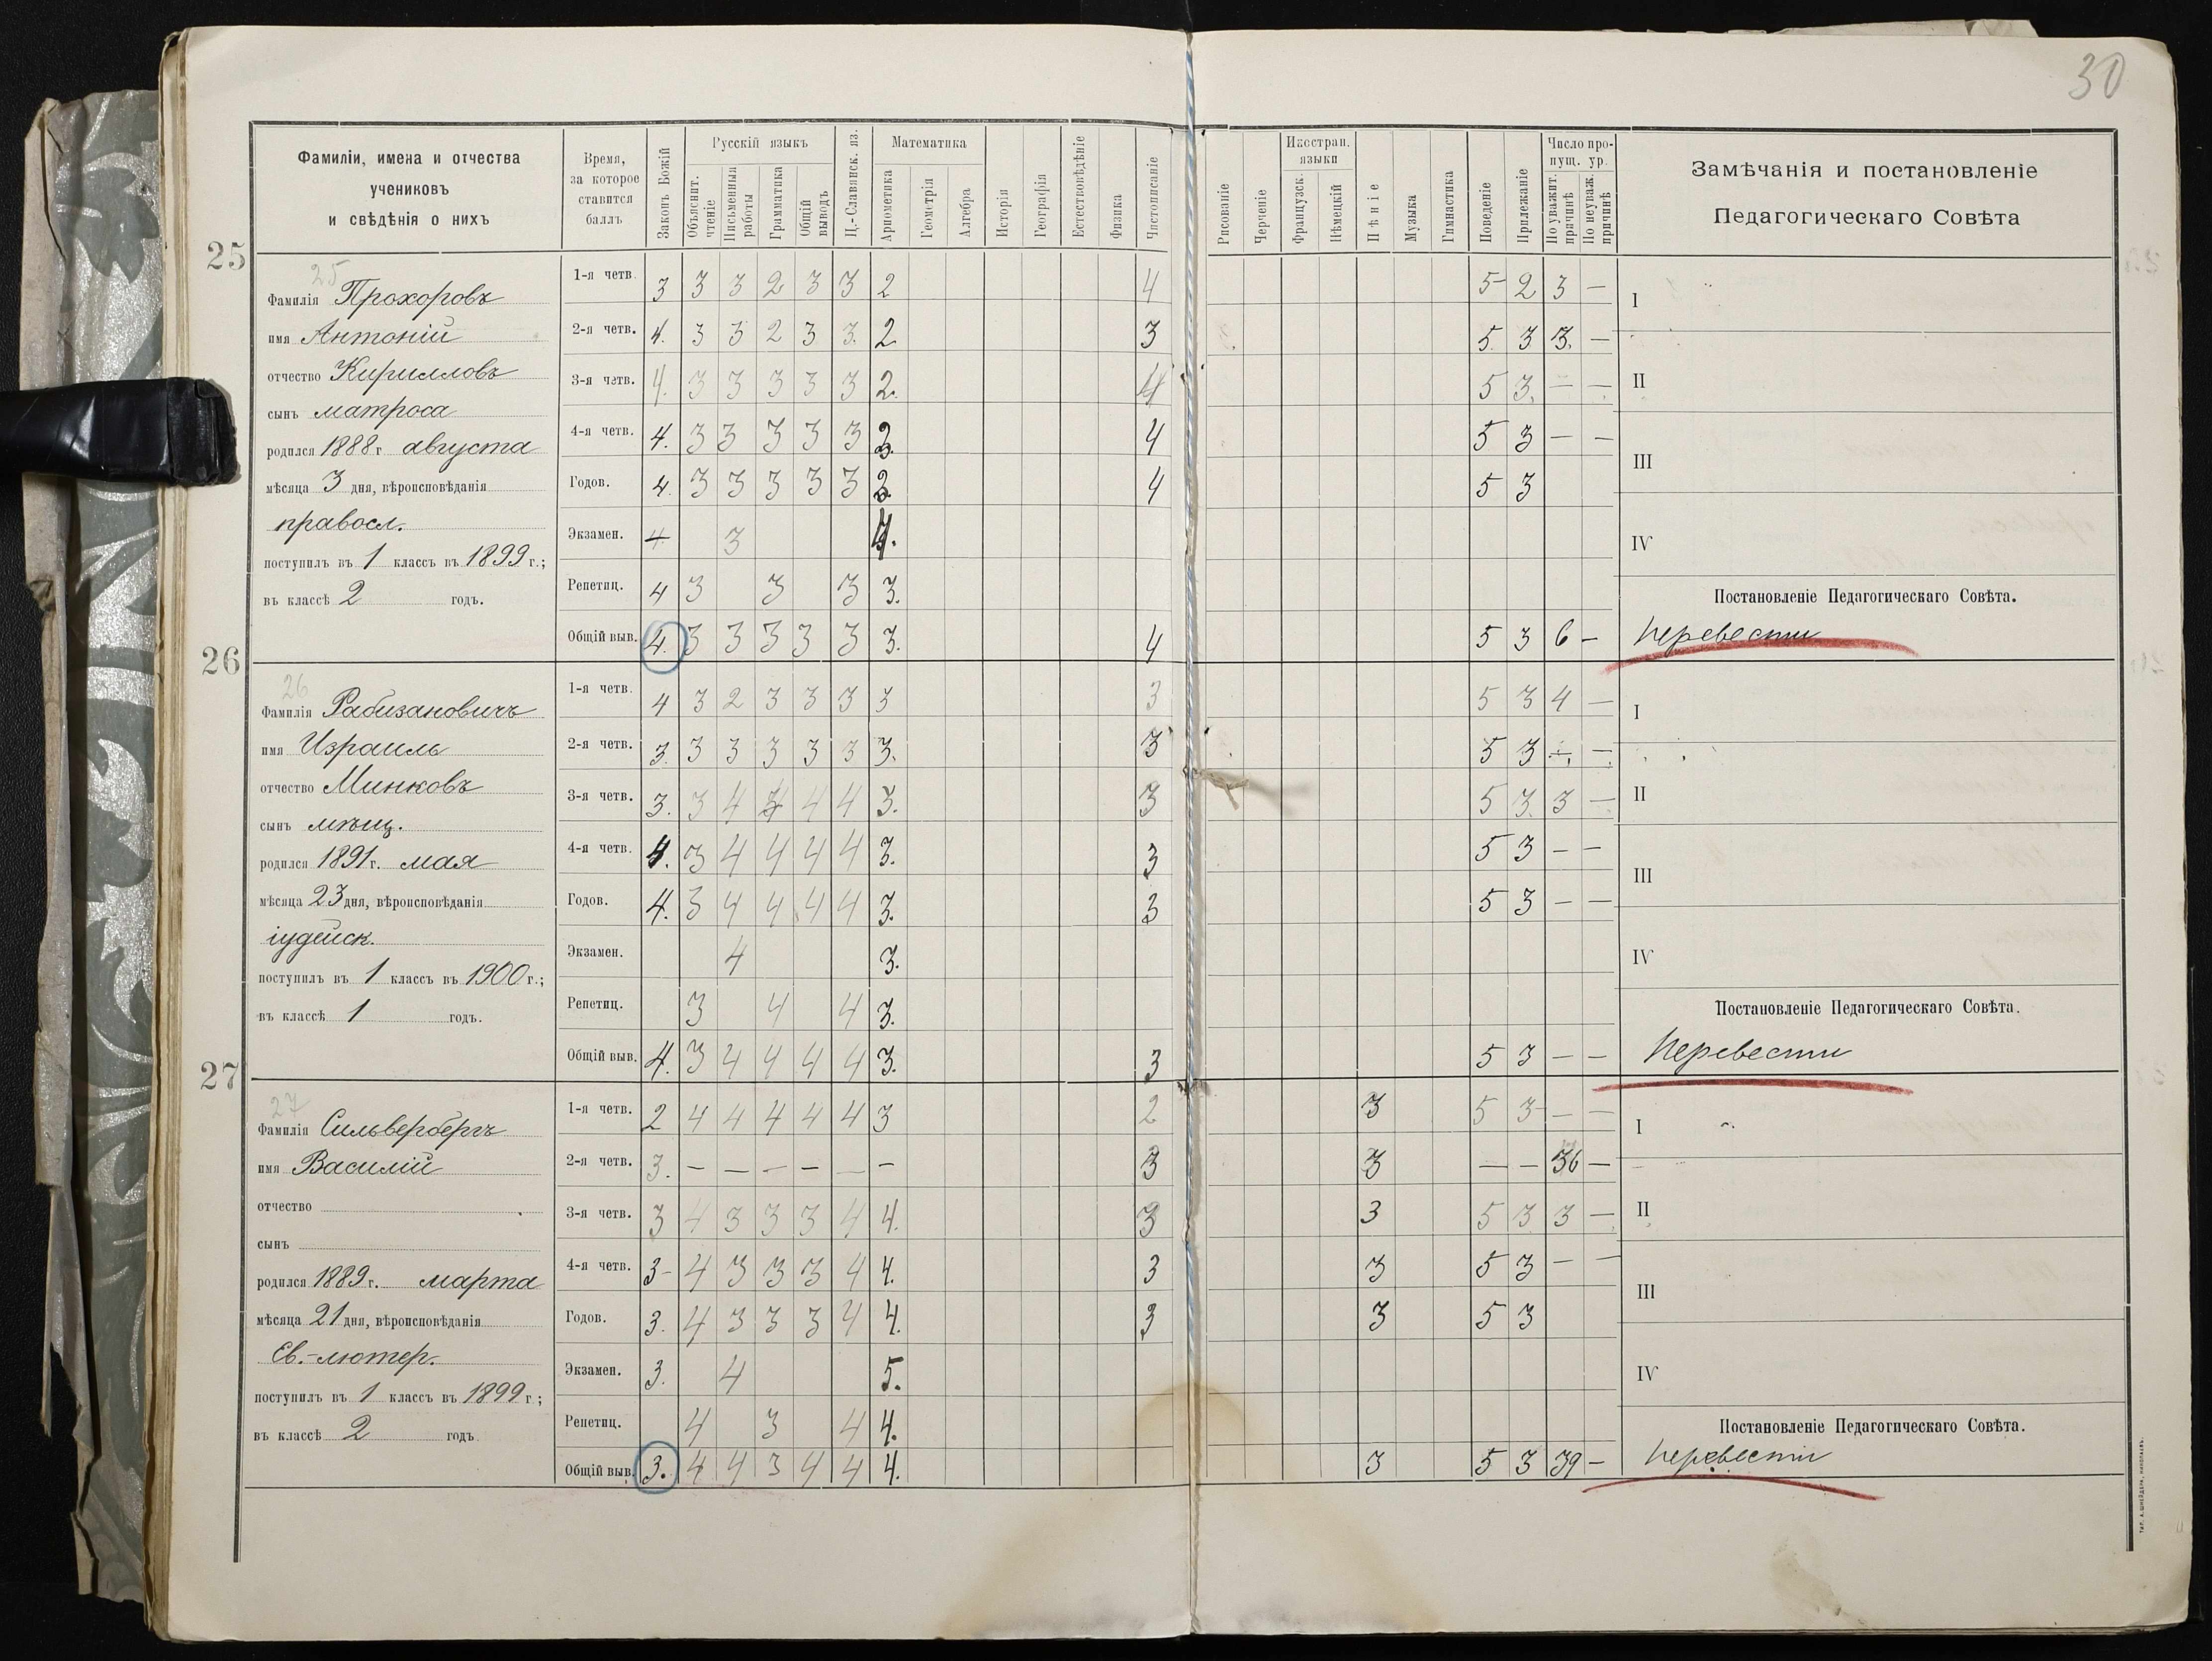 30
Фамиліи, имена и отчества
учениковъ
и свѣдѣнія о нихъ
Время,
за которое
ставится
баллъ
Законъ Божій
Русскій языкъ
Объяснит.
чтеніе
Письменныя
работы
Грамматика
Общій
выводъ
Ц.-Славянск. яз.
Математика
Ариѳметика
Геометрія
Алгебра
Исторія
Географія
Естествовѣдѣніе
Физика
Чистописаніе
Рисованіе
Черченіе
Иностран.
языки
Французск.
Нѣмецкій
Пѣніе
Музыка
Гимнастика
Поведеніе
Прилежаніе
Число про-
пущ. ур.
По уважит.
причинѣ
По неуваж.
причинѣ
Замѣчанія и постановленіе
Педагогическаго Совѣта
25
25
Фамилія Прохоровъ
имя Антоній
отчество Кирилловъ
сынъ матроса
родился 1888 г августа
мѣсяца 3 дня, вѣроисповѣданія
правосл.
поступилъ въ 1 классъ въ 1899 г.;
въ классѣ 2 годъ.
1-я четв. 3 3 3 2 3 3 2 4 5 2 3 — I
2-я четв. 4. 3 3 2 3 3. 2. 3 5. 3 3. —
3-я четв. 4. 3 3 3 3 3 2. 4 5 3. — — II
4-я четв. 4. 3 3 3 3 3 4 5 3 — —
III
Годов. 4. 3 3 3 3 3 4 5 3
Экзамен. 4. 3 4. IV
Репетиц. 4 3 3 3 3.
Постановленіе Педагогическаго Совѣта.
Общій выв. 4. 3 3 3 3 3 3. 4 5 3 6 — Перевести
26
26
Фамилія Рабизановичъ
имя Израиль
отчество Минковъ
сынъ мѣщ.
родился 1891 г. мая
мѣсяца 23 дня, вѣроисповѣданія
іудейск.
поступилъ въ 1 классъ въ 1900 г.;
въ классѣ 1 годъ.
1-я четв. 4 3 2 3 3 3 3 3 5 3 4 — I
2-я четв. 3. 3 3 3 3 3 3. 3 5 3 — —
3-я четв. 3. 3 4 4 4 4 3. 3 5 3. 3 — II
4-я четв. 4. 3 4 4 4 4 3. 3 5 3 — —
III
Годов. 4. 3 4 4 4 4 3. 3 5 3 — —
Экзамен. 4 3. IV
Репетиц. 3 4 4 3.
Постановленіе Педагогическаго Совѣта.
Общій выв. 4. 3 4 4 4 4 3. 3 5 3 — — Перевести
27
27
Фамилія Сильвербергъ
имя Василій
отчество
сынъ
родился 1889 г. марта
мѣсяца 21 дня, вѣроисповѣданія
Ев.-лютер.
поступилъ въ 1 классъ въ 1899 г.;
въ классѣ 2 годъ.
1-я четв. 2 4 4 4 4 4 3 2 3 5 3 — — I
2-я четв. 3. — — — — — — 3 3 — — 36 —
3-я четв. 3 4 3 3 3 4 4. 3 3 5 3 3 — II
4-я четв. 3 4 3 3 3 4 4. 3 3 5 3 — —
III
Годов. 3. 4 3 3 3 4 4. 3 3 5 3
Экзамен. 3. 4 5. IV
Репетиц. 4 3 4 4.
Постановленіе Педагогическаго Совѣта.
Общій выв. 3. 4 4 3 4 4 4. 3 5 3 39 — Перевести
ТИП. А. ШНЕЙДЕРА, НИКОЛАЕВЪ.